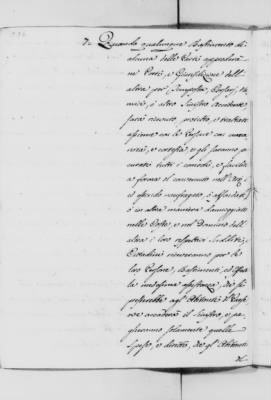 7. Quando qualunque Bastimento di
alcuna delle Parti approderà
ne Porti, o Giurisdizione dell'
altra per Tempesta, Corsari, Ne
mici, o altro Sinistro Accidente
sarà ricevuto, protetto, e trattato
assieme con le Persone con uma
nità, e cortesia, e gli saranno pro
curato tutti i comodi, e facilità
a forma il convenuto nell'Art.
essendo naufragato, o affondato
o in altra maniera danneggiato
nelle Coste, o nel Dominio dell'
altra i loro respettivi Sudditi, e
Cittadini riceveranno per le
loro Persone, Bastimenti, ed Effetti
la medesima assistenza, che si
presterebbe agl' Abitanti del Paese
ove accaderà il Sinistro, e pa
gheranno solamente quelle
spese, e diritti, che gl' Abitanti